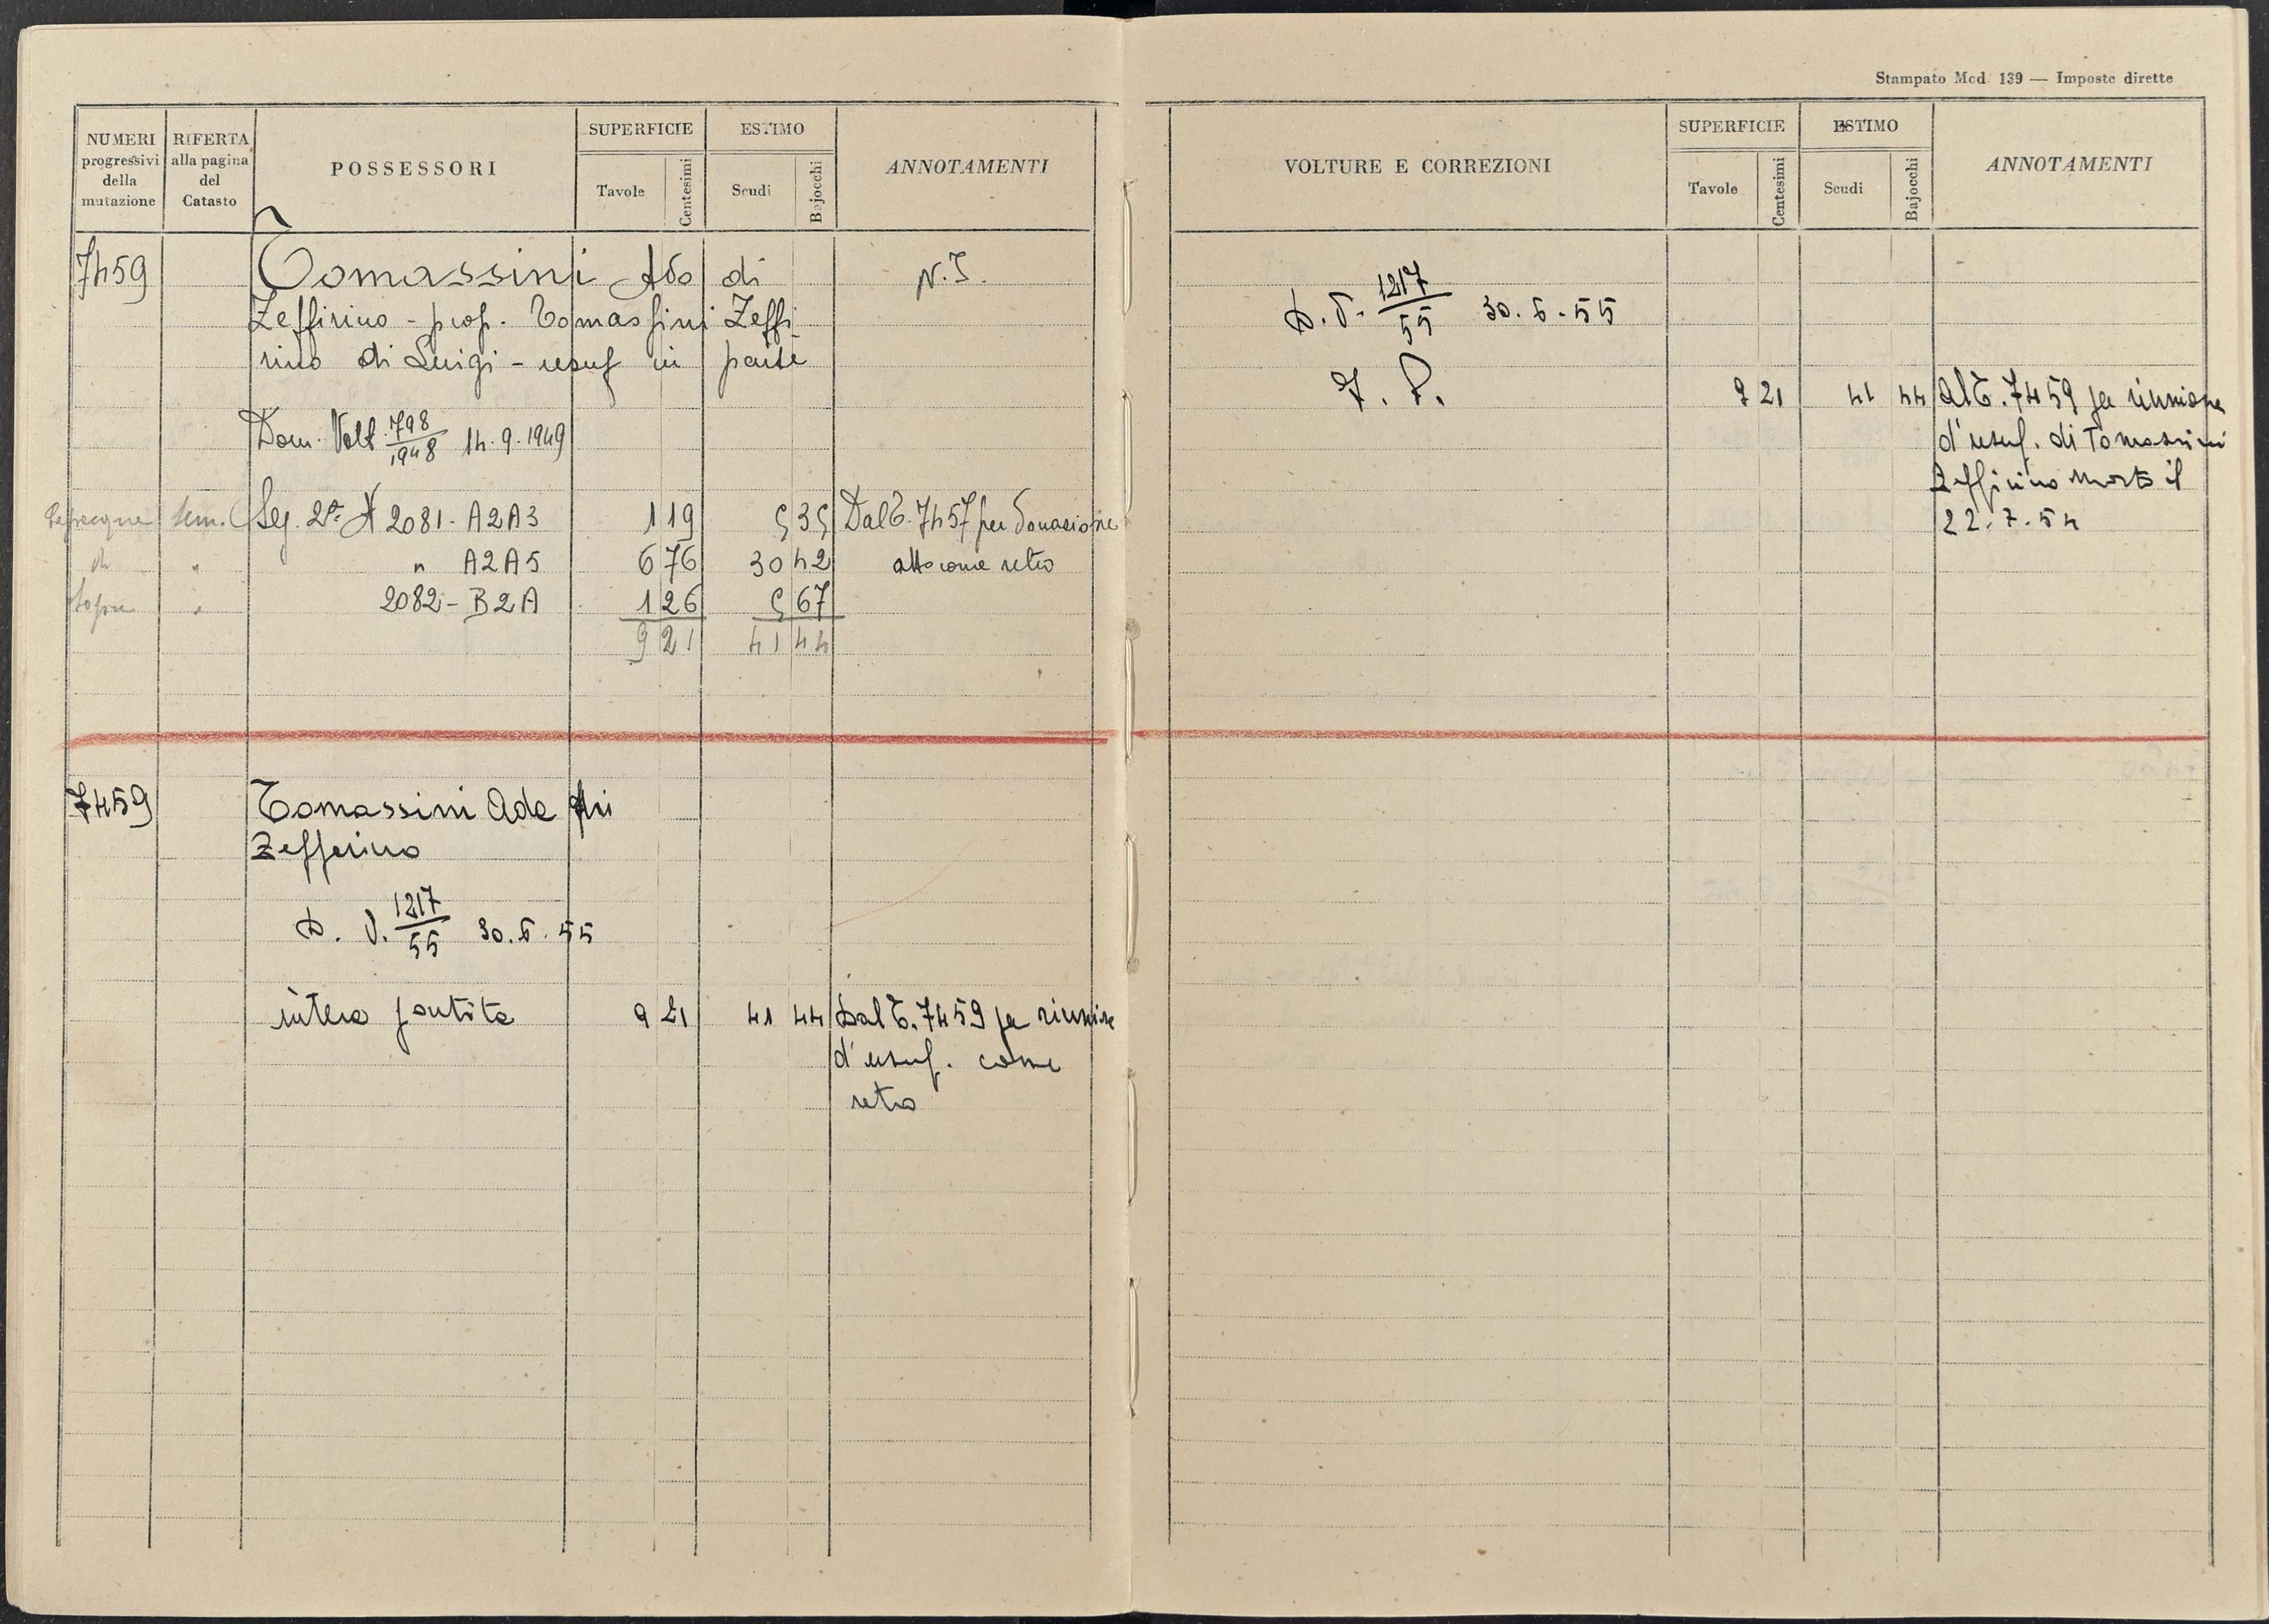 NUMERI progressivi della mutazione
RIFERTA alla pagina del Catasto
POSSESSORI
SUPERFICIE
Tavole
Centesimi
ESTIMO
Scudi
Bajocchi
ANNOTAMENTI
7459 Tomassini Ado di N.I.
Zeffirino - prop. Tomassini Zeffi
rino di Luigi - usuf in parte
Dom. Volt. 798/1948 14.9.1949
sem. Sez. 2ª N 2081 - A2A3 1 19 5 35 Dal T. 7457 per donazione
" " A2A5 6 76 30 42 atto come retro
" 2082 - B2A 1 26 5 67
9 21 41 44
7459 Tomassini Ade di
Zefferino
D. V. 1217/55 30.6.55
intera partita 9 21 41 44 Dal T. 7459 per riunione
d'usuf. come
retro
Stampato Mod. 139 — Imposte dirette
VOLTURE E CORREZIONI
SUPERFICIE
Tavole
Centesimi
ESTIMO
Scudi
Bajocchi
ANNOTAMENTI
D. V. 1217/55 30.6.55
I. P. 9 21 41 44 Al T. 7459 per riunione
d'usuf. di Tomassini
Zeffirino morto il
22.7.54